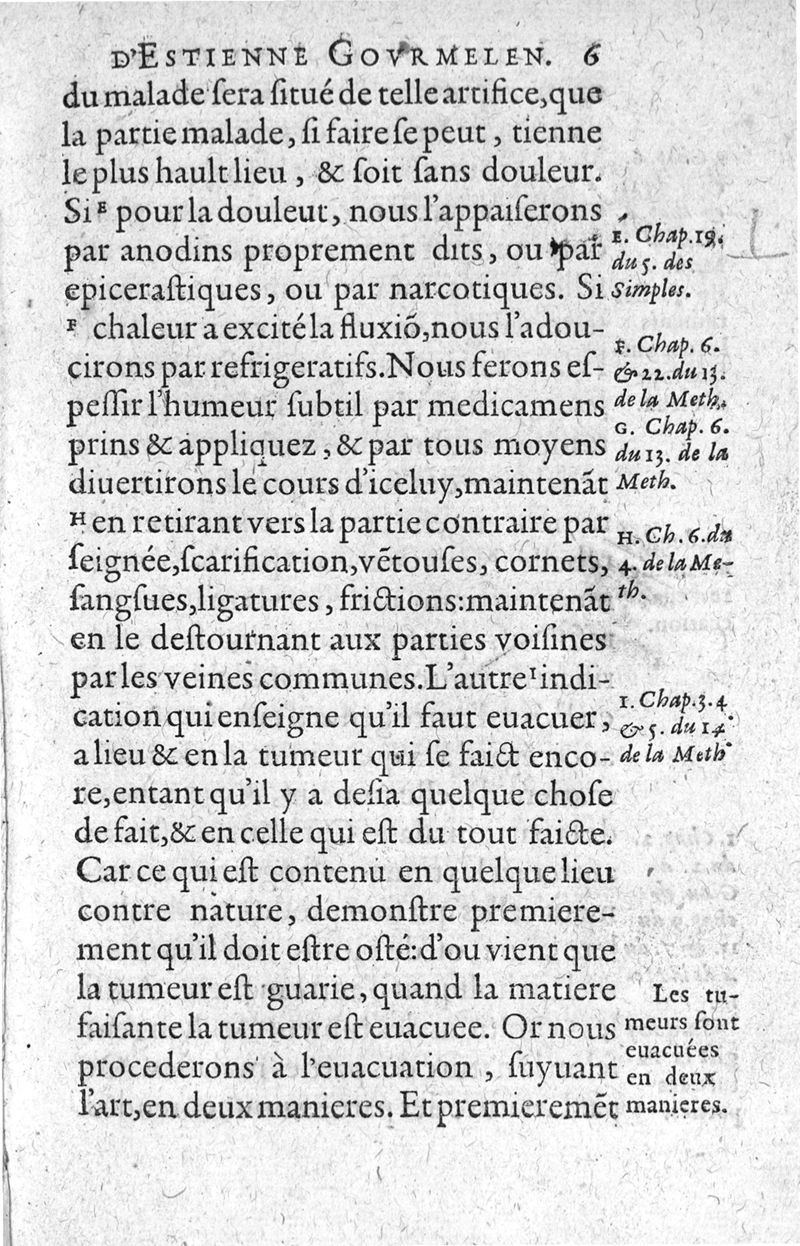 D'ESTIENNE GOVRMELEN. 6
du malade sera situé de telle artifice, que
la partie malade, si faire se peut, tienne
le plus hault lieu, & soit sans douleur.
Si ᴱ pour la douleur, nous l'appaiserons
par anodins proprement dits, ou par
epicerastiques, ou par narcotiques. Si
ꟳ chaleur a excité la fluxiõ, nous l'adou-
cirons par refrigeratifs. Nous ferons es-
pessir l'humeur subtil par medicamens
prins & appliquez, & par tous moyens
diuertirons le cours d'iceluy, maintenãt
ᴴ en retirant vers la partie contraire par
seignée, scarification, vẽtouses, cornets,
sangsues, ligatures, frictions: maintenãt
en le destournant aux parties voisines
par les veines communes. L'autre ᴵ indi-
cation qui enseigne qu'il faut euacuer,
a lieu & en la tumeur qui se faict enco-
re, entant qu'il y a desia quelque chose
de fait, & en celle qui est du tout faicte.
Car ce qui est contenu en quelque lieu
contre nature, demonstre premiere-
ment qu'il doit estre osté: d'ou vient que
la tumeur est guarie, quand la matiere
faisante la tumeur est euacuee. Or nous
procederons à l'euacuation, suyuant
l'art, en deux manieres. Et premieremẽt
E. Chap. 19.
du 5. des
Simples.
F. Chap. 6.
& 22. du 13.
de la Meth.
G. Chap. 6.
du 13. de la
Meth.
H. Ch. 6. du
4. de la Me-
th.
I. Chap. 3. 4
& 5. du 14
de la Meth
Les tu-
meurs sont
euacuées
en deux
manieres.